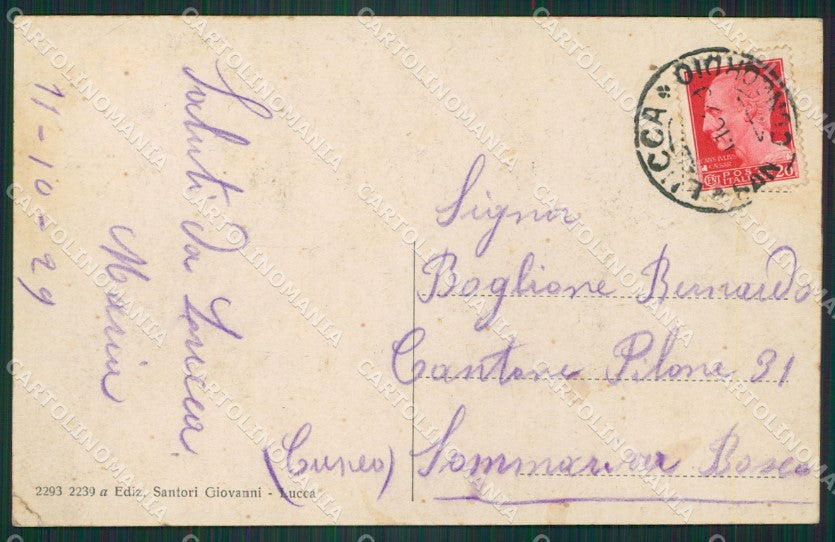 11-10-29
Saluti da Lucca
Maria
Signor
Boglione Bernardo
Cantone Pilone 31
(Cuneo) Sommariva Bosco
2293 2239 a Ediz. Santori Giovanni - Lucca
LUCCA
CAIUS IULIUS
CAESAR
CENT POSTE 20
ITALIANE
CARTOLINOMANIA